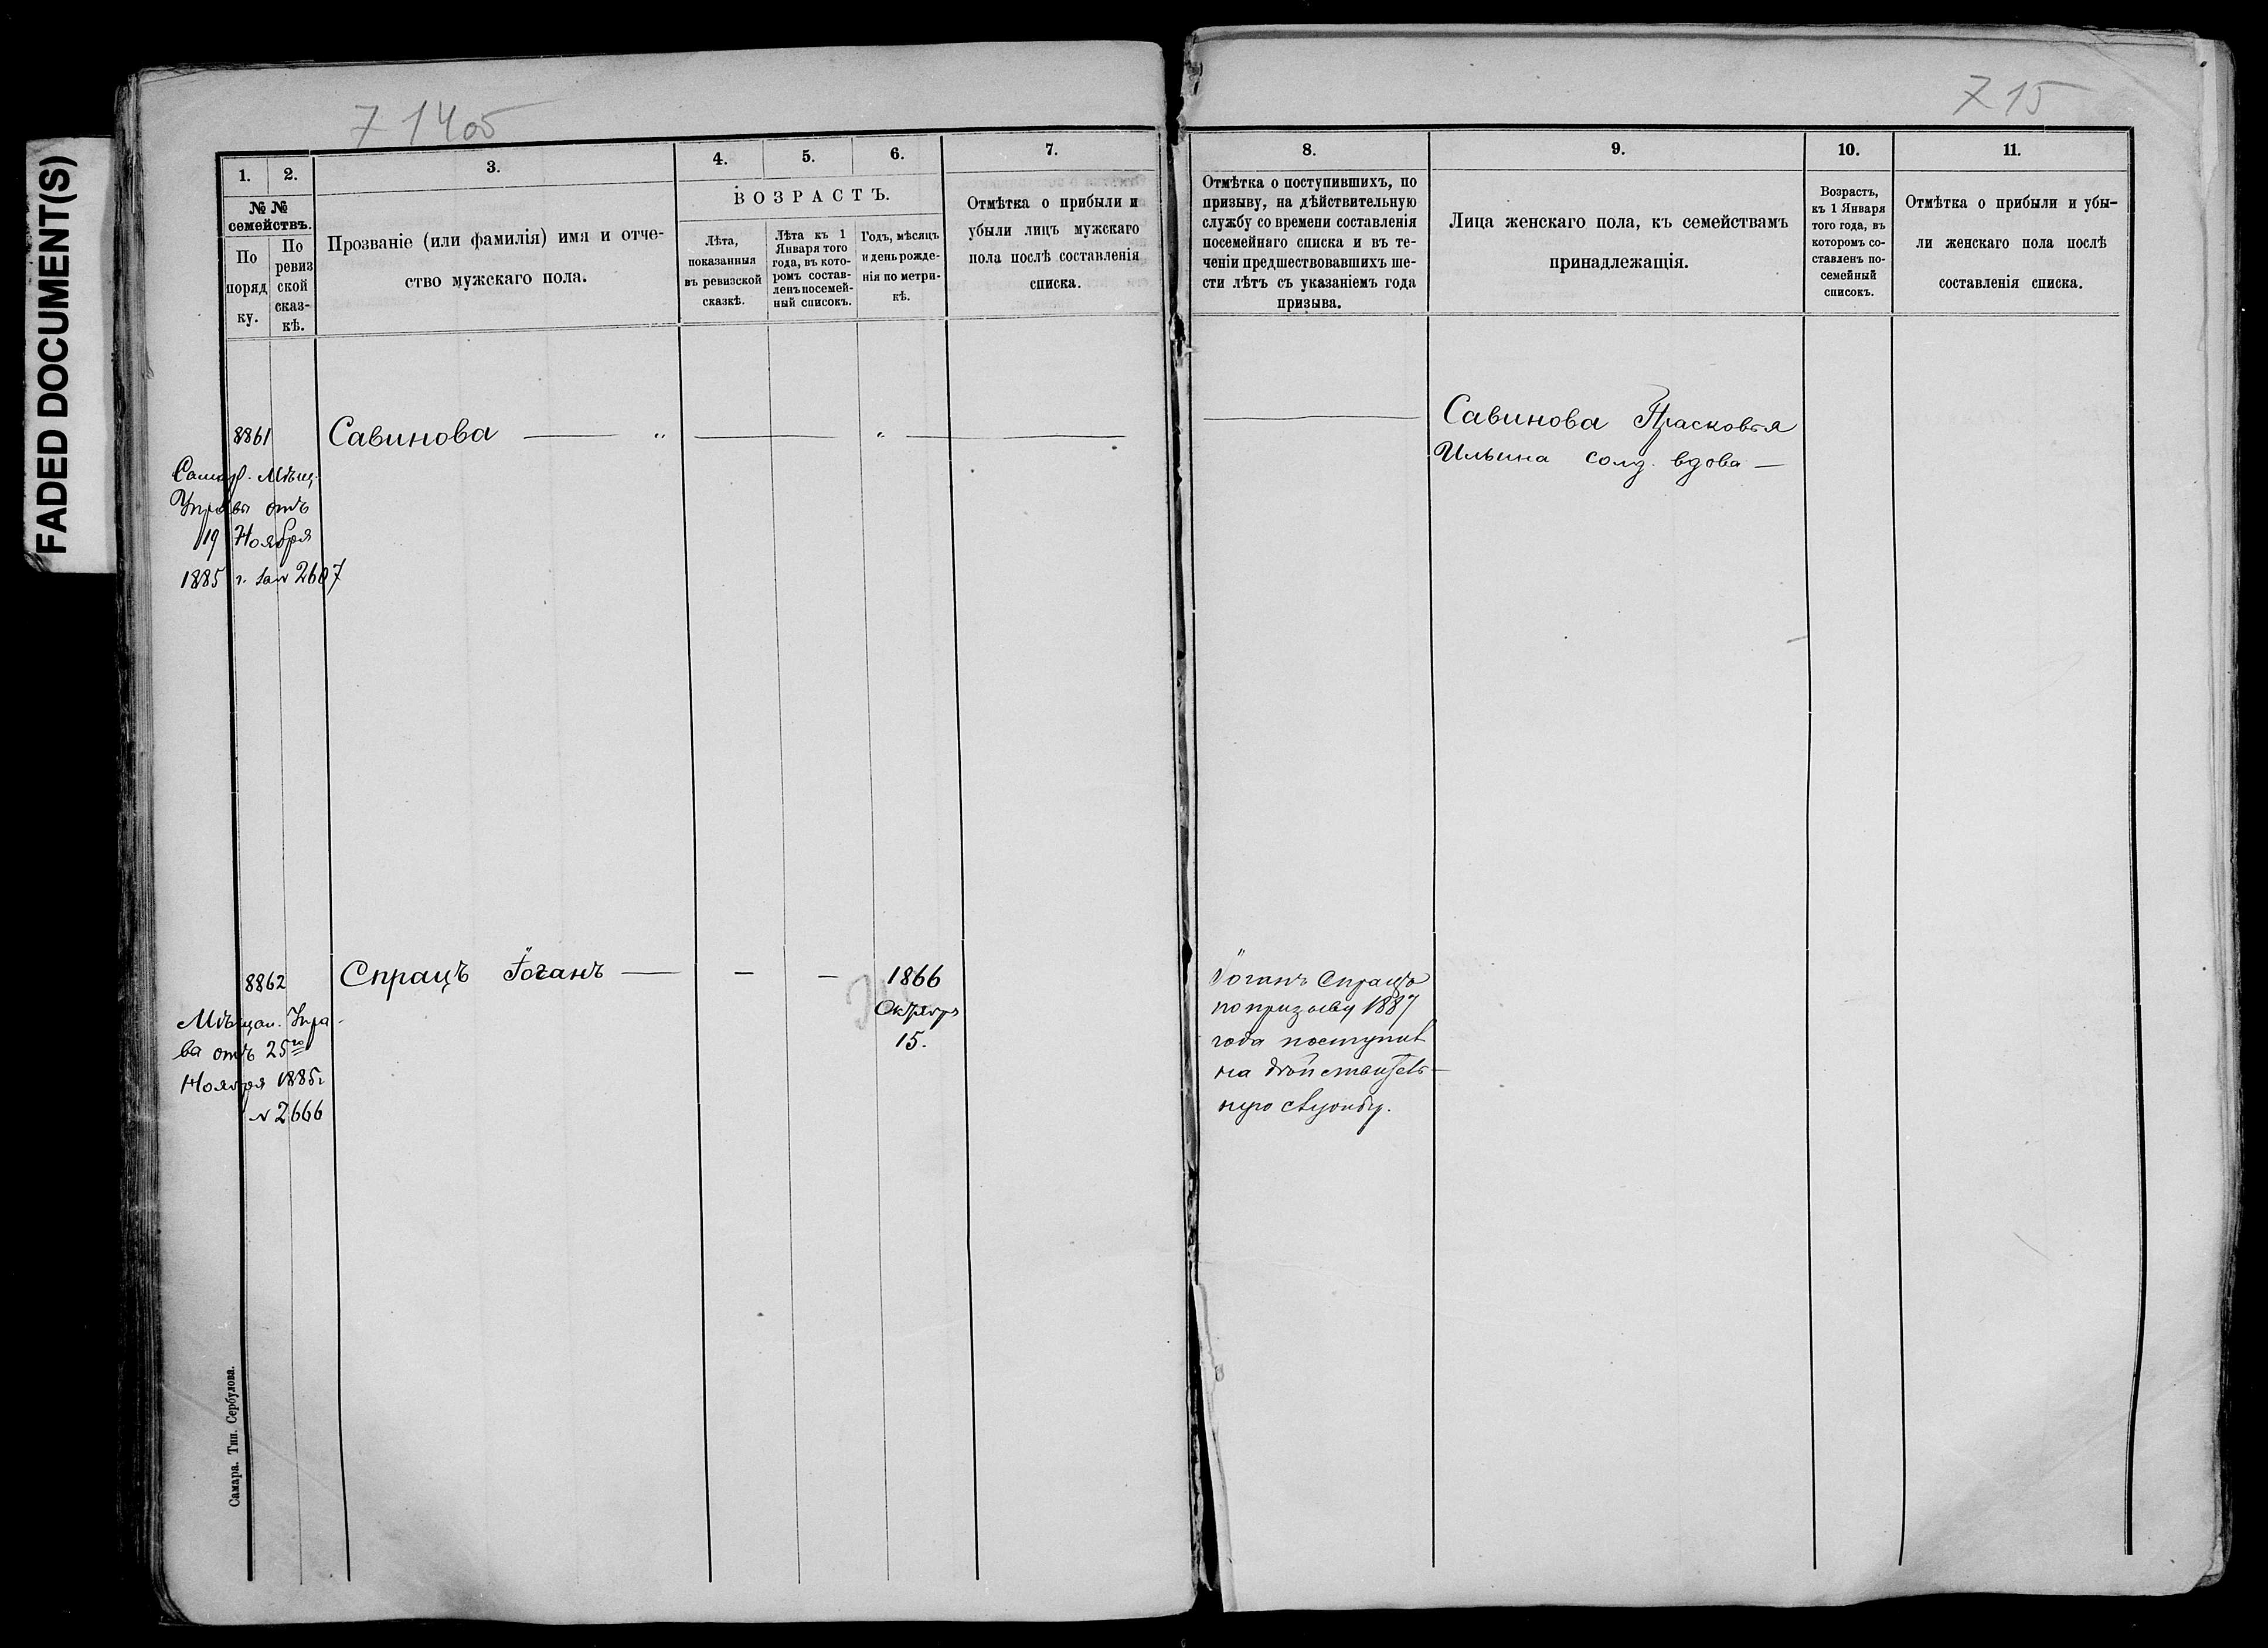 FADED DOCUMENT(S)
7 14 об
7 15
1.
2.
3.
4.
5.
6.
7.
№ №
семействъ.
По
поряд
ку.
По
ревиз
ской
сказ-
кѣ.
Прозваніе (или фамилія) имя и отче-
ство мужскаго пола.
ВОЗРАСТЪ.
Лѣта,
показанныя
въ ревизской
сказкѣ.
Лѣта къ 1
Января того
года, въ кото-
ромъ состав-
ленъ посемей-
ный списокъ.
Годъ, мѣсяцъ
и день рожде-
нія по метри-
кѣ.
Отмѣтка о прибыли и
убыли лицъ мужскаго
пола послѣ составленія
списка.
8.
9.
10.
11.
Отмѣтка о поступившихъ, по
призыву, на дѣйствительную
службу со времени составленія
посемейнаго списка и въ те-
ченіи предшествовавшихъ ше-
сти лѣтъ съ указаніемъ года
призыва.
Лица женскаго пола, къ семействамъ
принадлежащія.
Возрастъ,
къ 1 Января
того года, въ
которомъ со-
ставленъ по-
семейный
списокъ.
Отмѣтка о прибыли и убы-
ли женскаго пола послѣ
составленія списка.
8861 Савинова — „ — „ —
Самар. Мѣщ.
Управы отъ
19 Ноября
1885 г. за № 2607
— Савинова Прасковья
Ильина солд. вдова —
8862 Спрацъ Іоганъ — — — 1866
Октября
15.
Мѣщан. Упра-
ва отъ 25го
Ноября 1885г
№ 2666
Іоганъ Спрацъ
по призыву 1887
года поступил
на дѣйствитель-
ную службу.
Самара. Тип. Сербулова.